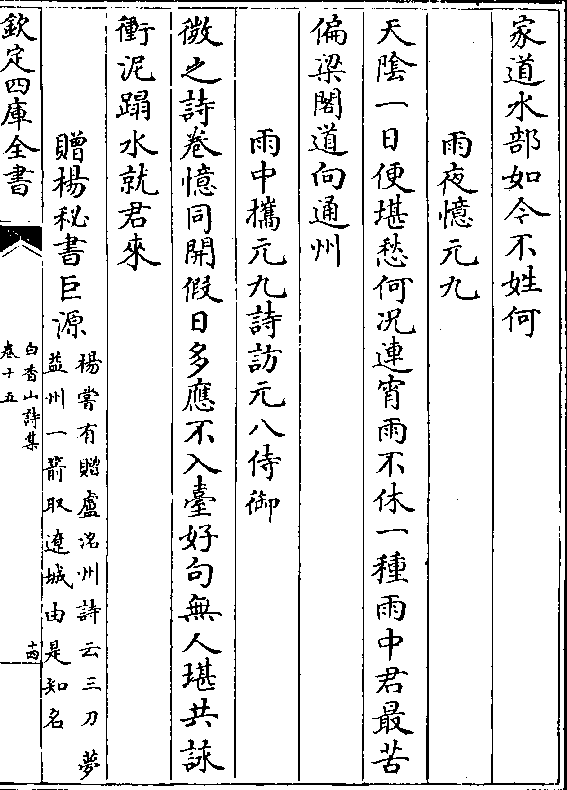 家道水部如今不姓何
雨夜憶元九
天陰一日便堪愁何况連宵雨不休一種雨中君最苦
偏梁閣道向通州
雨中攜元九詩訪元八侍御
微之詩卷憶同開假日多應不入臺好句無人堪共詠
衝泥蹋水就君來
贈楊秘書巨源
楊嘗有贈盧洺州詩云三刀夢
益州一箭取遼城由是知名
欽定四庫全書
白香山詩集
卷十五
十四